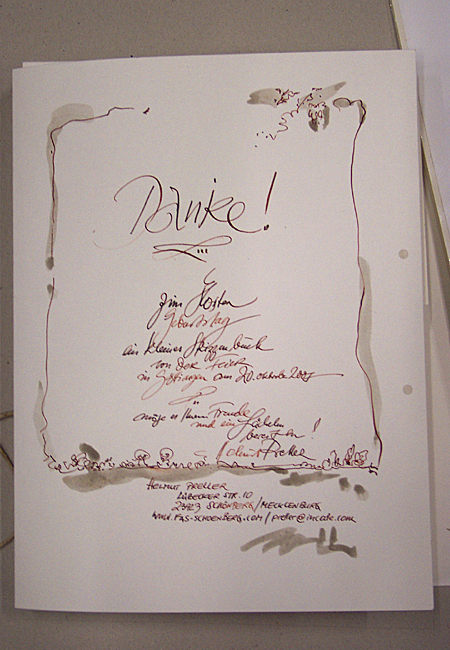 Danke!
zum
Geburtstag
ein kleines Skizzenbuch
von der Feier
in Göttingen am 20. Oktober 2007
möge es Ihnen Freude
und ein Lächeln
bereiten!
Helmut Preller
HELMUT PRELLER
LÜBECKER STR. 10
23923 SCHÖNBERG/MECKLENBURG